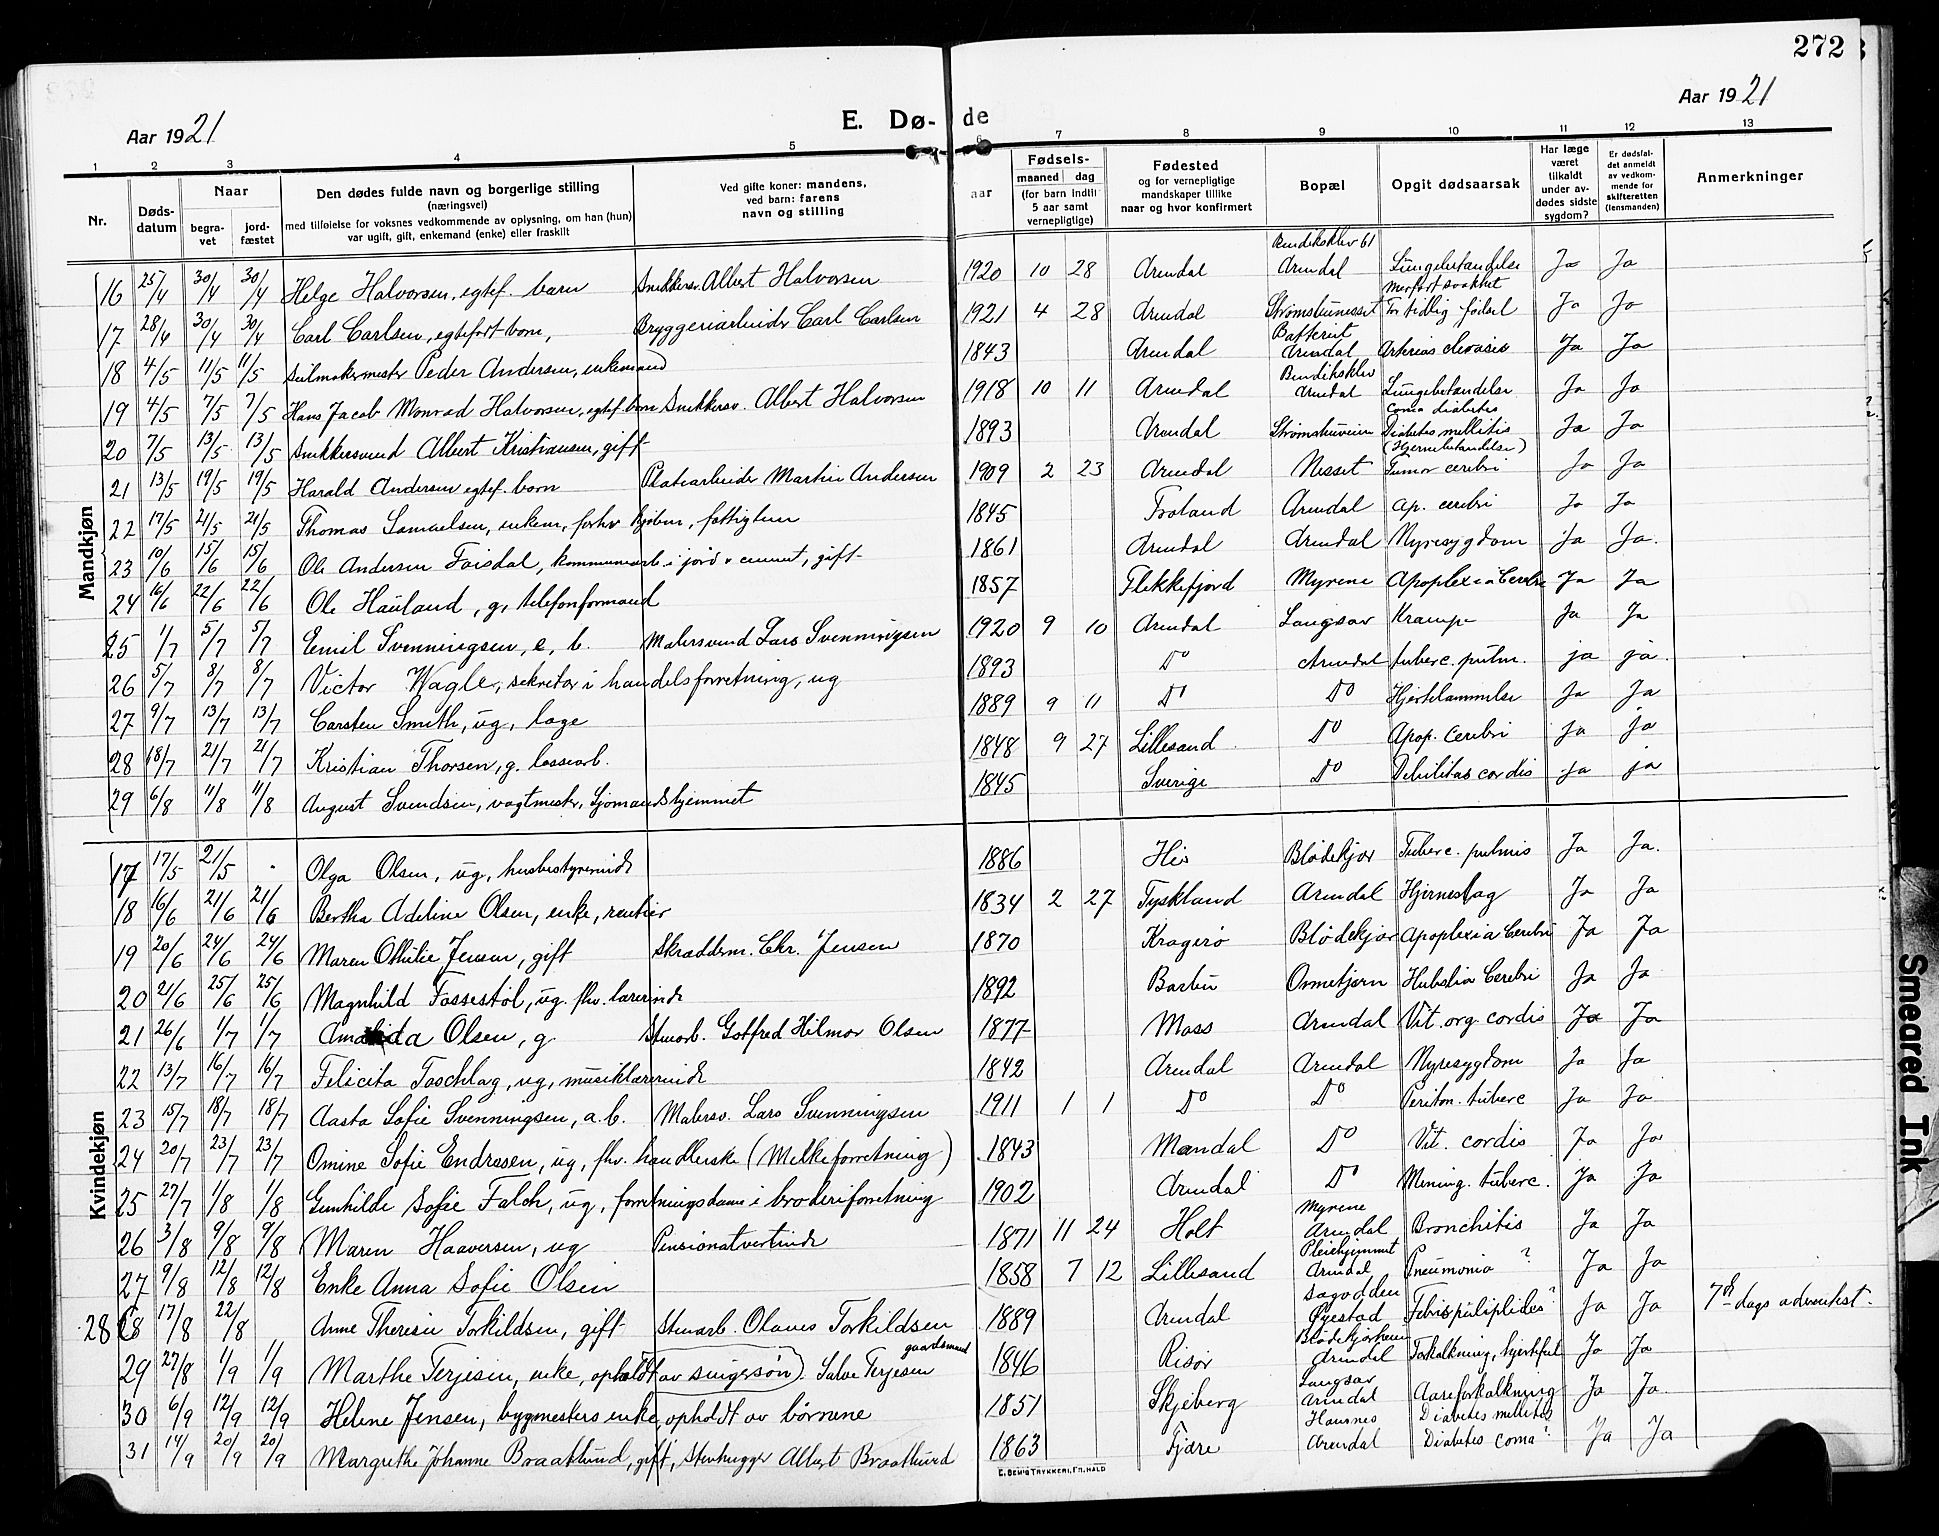 272
Aar 1921
E. Dø- de
Aar 1921
1 2 3 4 5 6 7 8 9 10 11 12 13
Nr.
Døds-datum
Naar
begra-vet
jord-fæstet
Den dødes fulde navn og borgerlige stilling
(næringsvei)
med tilføielse for voksnes vedkommende av oplysning, om han (hun)
var ugift, gift, enkemand (enke) eller fraskilt
Ved gifte koner: mandens,
ved barn: farens
navn og stilling
Fødsels-
aar
maaned dag
(for barn indtil
5 aar samt
vernepligtige)
Fødested
og for vernepligtige
mandskaper tillike
naar og hvor konfirmert
Bopæl
Opgit dødsaarsak
Har læge
været
tilkaldt
under av-
dødes sidste
sygdom?
Er dødsfal-
det anmeldt
av vedkom-
mende for
skifteretten
(lensmanden)
Anmerkninger
Mandkjøn
16 25/4 30/4 30/4 Helge Halvorsen, egtef. barn Snekkersv. Albert Halvorsen 1920 10 28 Arendal Bendiksklev 61 Arendal Lungebetændelse Ja Ja
17 28/4 30/4 30/4 Carl Carlsen, egtefødt barn, Bryggeriarbeider Carl Carlsen 1921 4 28 Arendal Strømsbunesset For tidlig fødsel Ja Ja
18 4/5 11/5 11/5 Seilmakermester Peder Andersen, enkemand 1843 Arendal Batteriet Arendal Ja Ja
19 4/5 7/5 7/5 Hans Jacob Monrad Halvorsen, egtef. barn Snekkersv. Albert Halvorsen 1918 10 11 Arendal Bendiksklev Arendal Lungebetændelse Ja Ja
20 7/5 13/5 13/5 Snekkersvend Albert Kristiansen, gift 1893 Arendal Strømsbuveien Coma diabetes Diabetes mellitis Ja Ja
21 13/5 19/5 19/5 Harald Andersen egtef. barn Platearbeider Martin Andersen 1909 2 23 Arendal Nesset (Hjernebetændelse) Tumor cerebri Ja Ja
22 17/5 21/5 21/5 Thomas Samuelsen, enkem, forhv kjøbm, fattiglem 1845 Froland Arendal Ap. cerebri Ja Ja
23 10/6 15/6 15/6 Ole Andersen Foisdal, kommunearb. i jord & cement, gift 1861 Arendal Arendal Nyresygdom Ja Ja.
24 16/6 22/6 22/6 Ole Hauland, g, telefonformand 1857 Flekkefjord Myrene Apoplexia Cerebri Ja Ja
25 1/7 5/7 5/7 Emil Svenningsen, e. b. Malersvend Lars Svenningsen 1920 9 10 Arendal Langsæv Krampe Ja Ja
26 5/7 8/7 8/7 Victor Wagle, sekretær i handelsforretning, ug 1893 Do Arendal tuberc. pulm. ja ja.
27 9/7 13/7 13/7 Carsten Smith, ug, læge 1889 9 11 Do Do Hjertelammelse Ja Ja
28 18/7 21/7 21/7 Kristian Thorsen, g. lossearb. 1848 9 27 Lillesand Do Apop. Cerebri Ja ja
29 6/8 11/8 11/8 August Svendsen, vagtmester, Sjømandshjemmet 1845 Sverige Do Debilitas cordis ja ja
Kvindekjøn
17 17/5 21/5 - Olga Olsen, ug, husbestyrerinde 1886 His Blødekjær Tuberc. pulmis Ja Ja.
18 16/6 21/6 21/6 Bertha Adeline Olsen, enke, rentier 1834 2 27 Tyskland Arendal Hjerneslag Ja Ja
19 20/6 24/6 24/6 Maren Othilie Jensen, gift Skræddem. Chr. Jensen 1870 Kragerø Blødekjær Apoplexia Cerebri Ja Ja
20 21/6 25/6 25/6 Magnhild Fossestøl, ug. fhv. lærerinde 1892 Barbu Ormetjern Cerebri Ja Ja
21 26/6 1/7 1/7 Amanda Olsen, g Stuearb. Gotfred Hilmar Olsen 1877 Moss Arendal Vit. org. cordis Ja Ja
22 13/7 16/7 16/7 Felicita Taschlag, ug, musiklærerinde 1842 Arendal Arendal Nyresygdom Ja Ja
23 15/7 18/7 18/7 Aasta Sofie Svenningsen, a. b. Malersv. Lars Svenningsen 1911 1 1 Do Do Periton. tuberc Ja Ja
24 20/7 23/7 23/7 Omine Sofie Endresen, ug, fhv. handlerske (Melkeforretning) 1843 Mandal Do Vit. cordis Ja Ja
25 27/7 1/8 1/8 Gunhilde Sofie Falch, ug, forretningsdame i broderiforretning 1902 Arendal Do Mening. tuberc. Ja Ja
26 3/8 9/8 9/8 Maren Haaversen, ug Pensionatvertinde 1871 11 24 Holt Myrene Arendal Bronchitis Ja Ja
27 9/8 12/8 12/8 Enke Anna Sofie Olsen 1858 7 12 Lillesand Pleiehjemmet Arendal Pneumonia ? Ja Ja
28 17/8 22/8 „ Anne Therese Torkildsen, gift Stuearb. Olaves Torkildsen 1889 Arendal Øyestad Ja Ja 7de dags adventist.
29 27/8 1/9 1/9 Marthe Terjesen, enke, opholdt av Salve Terjesen gaardsmand 1846 Risør Blødekjærheien Arendal Forkalkning, hjertefeil Ja Ja
30 6/9 12/9 12/9 Helene Jensen, bygmesters enke, opholdt av børnene 1851 Skjeberg Langsæv Arendal Aareforkalkning Ja Ja.
31 14/9 20/9 20/9 Margrethe Johanne Braathund, gift, Stenhugger Albert Braathund 1863 Fjære Arendal Diabetes mellitis Diabetes coma? Ja Ja
E. SEM'S TRYKKERI, FR. HALD
Smeared Ink